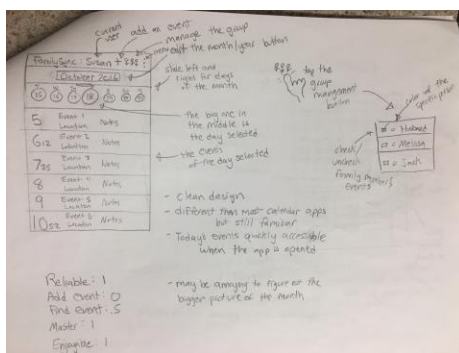 current user
add an event
manage the group
edit the month/year button
FamilySync: Susan +
October 2016
slide left and
right for days
of the month
the big one in
the middle is
the day selected
the events
of the day selected
5 Event 1 Location Notes
6:12 Event 2 Location Notes
7 Event 3 Location Notes
8 Location Notes
9 Event 5 Location Notes
10:52 Event 6 Location Notes
tap the
group
management
button
color of the
specific person
Husband
Melissa
Jack
check/
uncheck
family members
events
- clean design
- different than most calendar apps
but still familiar
- Today's events quickly accessible
when the app is opened
- may be annoying to figure out the
bigger picture of the month
Reliable: 1
Add event: 0
Find event: .5
Master: 1
Enjoyable: 1